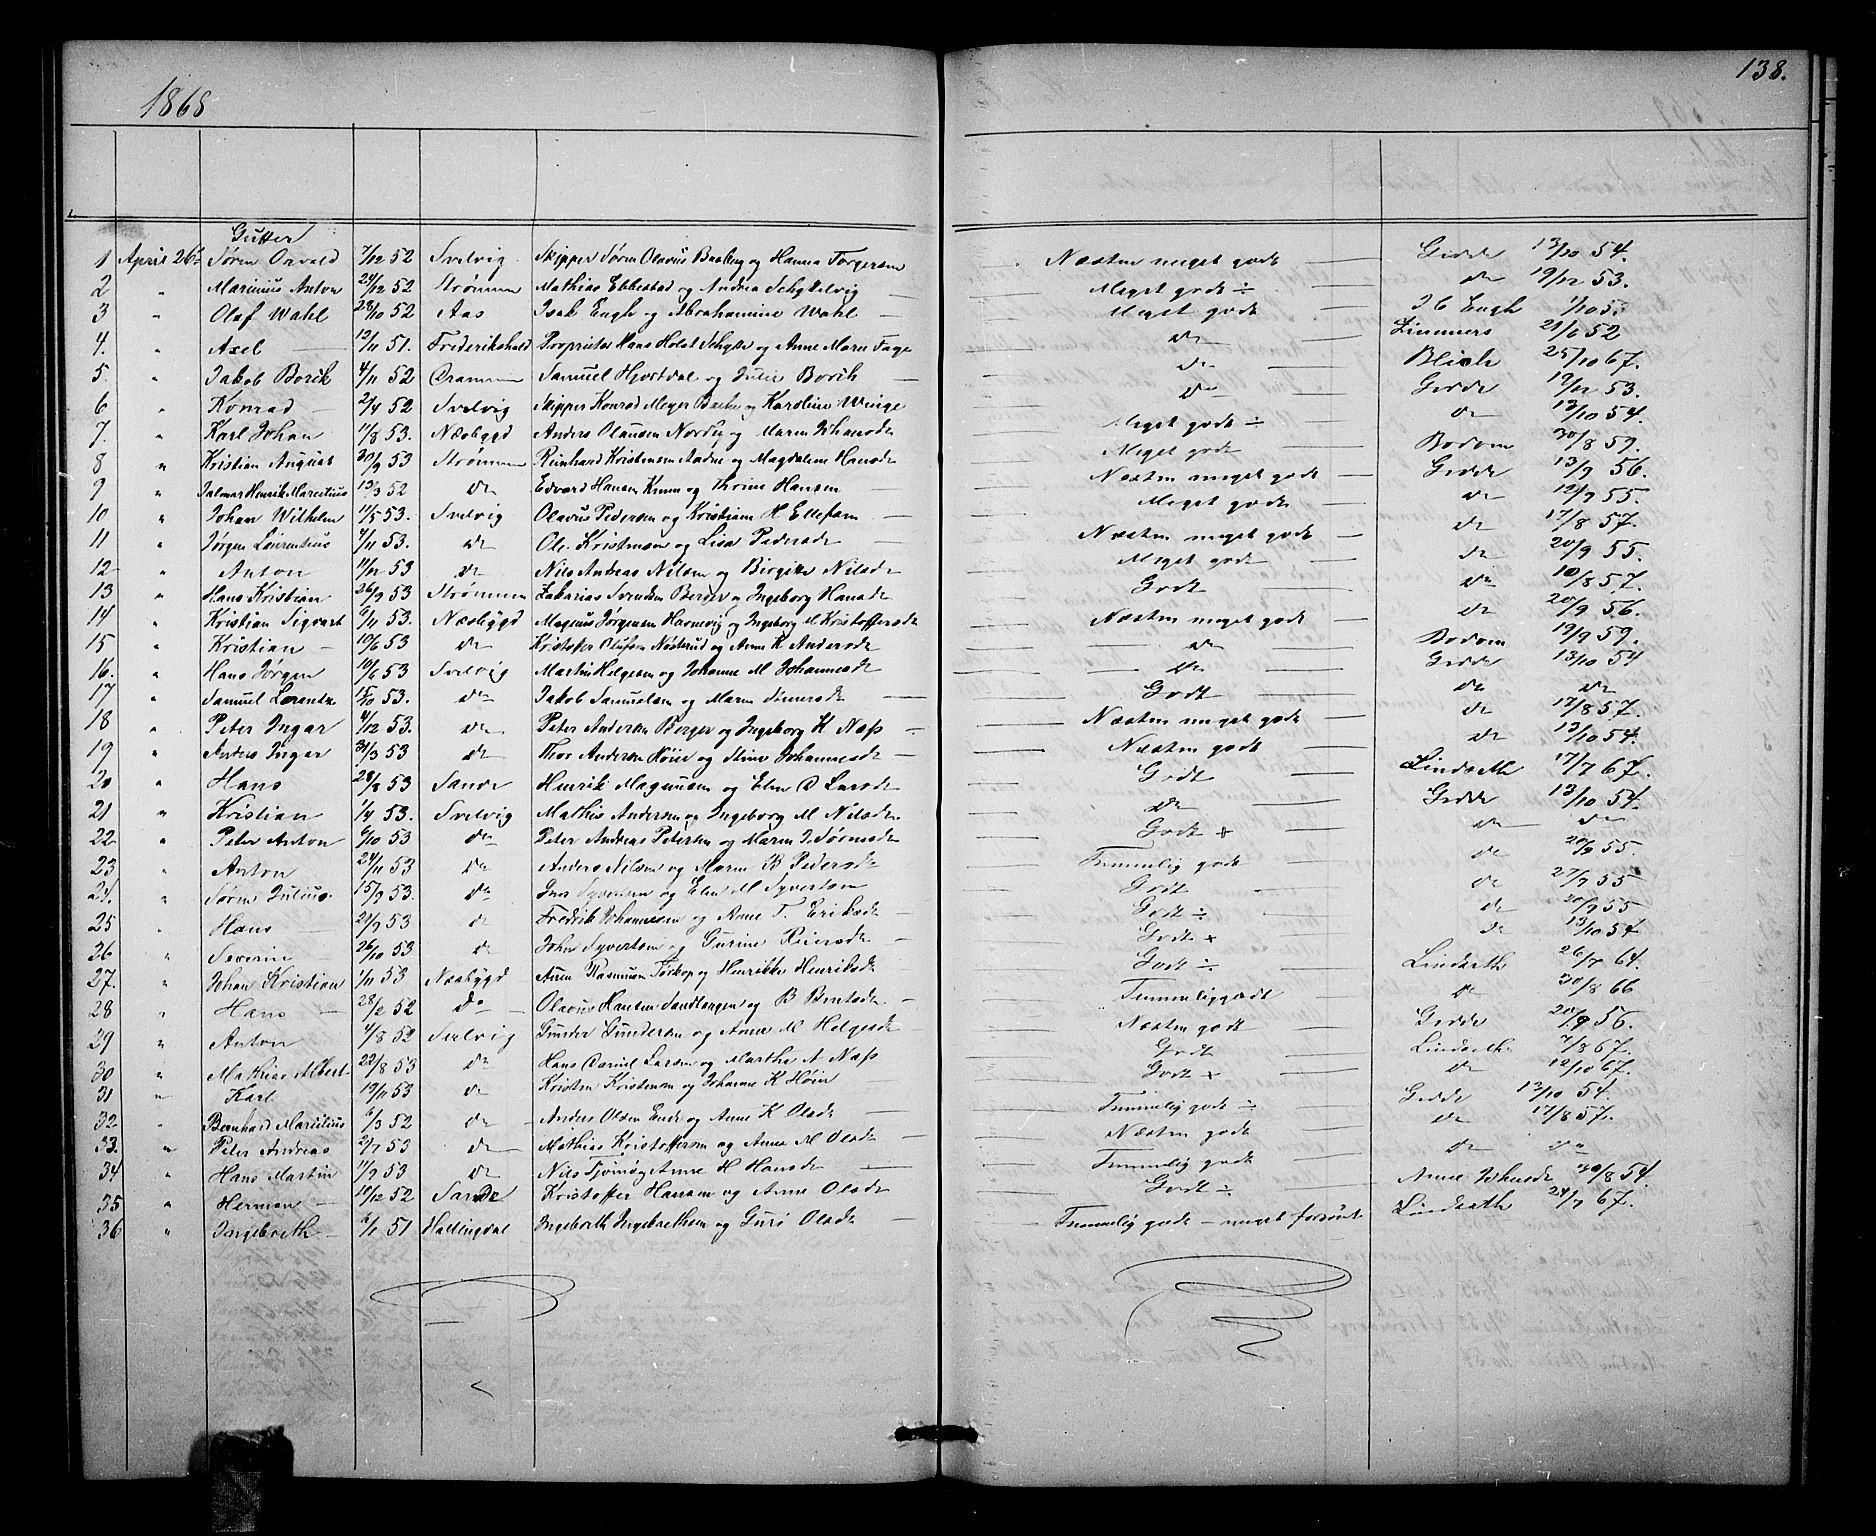 138.
1868
Gutter
1 April 26 Søren Osvald 7/12 52 Svelvig Skipper Søren Olavus Baaberg og Hanna Torgersen Næsten meget godt Gedde 13/10 54.
2 " Marinius Anton 24/12 52 Strømmen Mathias Ebbestad og Andrea Schytelvig Meget godt ÷ do 19/12 53.
3 " Olaf Wahl 28/10 52 Aas Isak Engh og Abrahamine Wahl Meget godt I C Engh 1/10 5
4. " Axel 12/11 51. Frederikshald Proprietær Hans Holst Schytte og Anne Marie Fage do 21/6 52
5. " Jakob Borik 4/11 52 Drammen Samuel Hjortdal og Borik do Blich 25/10 67.
6 " Konrad 2/4 52 Svelvig Skipper Konrad Meyer og Karoline Winge do Gedde 19/12 53.
7. " Karl Johan 11/8 53. Næsbygd Anders Olausen Nordby og Maren Johansdt Meget godt ÷ do 13/10 54.
8 " Kristian August 30/9 53 Strømmen Reinhard Kristensen og Magdalene Hansdt Meget godt Bodom 30/8 59.
9 " Jalmar Henrik Marcelius 13/3 52 do Edvard Hansen og Thrine Hansen Næsten meget godt Gedde 13/9 56.
10 " Johan Wilhelm 11/5 53. Svelvig Olavus Pedersen og Kristiane H Ellefsen Meget godt do 12/9 55
11 " Jørgen Laurentius 4/11 53. do Ole Kristensen og Lisa Pedersdt Næsten meget godt do 17/8 57.
12 " Anton 11/12 53 do Nils Andreas Nilsen og Birgitte Nilsdt Meget godt do 20/9 55.
13 " Hans Kristian 26/9 53 Strømmen Zakarias Svendsen Berger og Ingeborg Hansdt Godt do 10/8 57.
14 " Kristian Sigvart 6/11 53. Næsbygd Magnus Jørgensen Havnevig og Ingeborg M Kristoffersdt Næsten meget godt do 20/9 56.
15 " Kristian 10/6 53 do Kristoffer Olufsen Nøsterud og Anne K Andersdt do Bodom 19/9 59.
16. " Hans Jørgen 10/6 53 Svelvig Martin Helgesen og Johanne M Johannesdt do Gedde 13/10 54
17 " Samuel Lorentz 15/10 53. do Jakob Samuelsen og Maren Iversdt Godt do do
18 " Peter Ingar 4/12 53. do Peter Andersen Berger og Ingeborg K Næss Næsten meget godt do 17/8 57.
19 " Anders Ingar 31/3 53 do Thor Andersen Høier og Stine Johannesdt Næsten godt do 13/10 54.
20 " Hans 28/8 53 Sande Henrik Magnusen og Elen O Larsdt Godt Lindseth 17/7 67.
21 " Kristian 1/4 53. Svelvig Mathis Andersen og Ingeborg M Nilsdt do Gedde 13/10 54.
22 " Peter Anton 6/10 53 do Peter Andreas Petersen og Maren I Sørensdt Godt + do do
23 " Anton 24/11 53 do Anders Nilsen og Maren B Pedersdt Temmelig godt do 20/9 55.
24. " Søren Julius. 15/9 53. do Syversen og Elen M Syvertsen Godt do 27/9 55
25 " Hans 21/9 53 do Fredrik Johannesen og Anne T. Eriksdt Godt ÷ do 20/9 55
26 " Severin 26/10 53 do John Syvertsen og Gurine Reiersdt Godt + do 13/10 57
27. " Johan Kristian 1/11 53 Næsbygd Aren Rasmusen Torkop og Henrikke Henriksdt Godt ÷ Lindseth 26/7 64.
28 " Hans 28/2 52 do Olavus Hansen Sandtangen og B Bentsdt Temmeliggodt do 30/8 66
29 " Anton 4/8 52 Svelvig Gunder Gundersen og Anne M Helgesdt Næsten godt Gedde 20/9 56.
30 " Mathias Albert 22/8 53 do Hans Daniel Larsen og Marthe A Næss Godt Lindseth 7/8 67.
31 " Karl 19/11 53 do Kristen Kristensen og Johanne K Høier Godt + do 12/10 67.
32 " Bernhard Marcelius 6/3 52 do Anders Olsen Ende og Anne K Olsdt Temmelig godt ÷ Gedde 13/10 54.
33. " Peter Andreas 2/7 53 do Mathias Kristoffersen og Anne M Olsdt Næsten godt do 17/8 57.
34 " Hans Martin 11/9 53 do Nils Tjømø og Anne H Hansdt Temmelig godt do do
35 " Herman 10/12 52 Sande Kristoffer Hansen og Anne Olsdt Godt ÷ Anne Johnsdt 30/8 54.
36 " Ingebreth 6/1 51 Hallingdal Ingebreth Ingebrethsen og Guri Olsdt Temmelig godt - meget forsømt Lindseth 24/9 67.